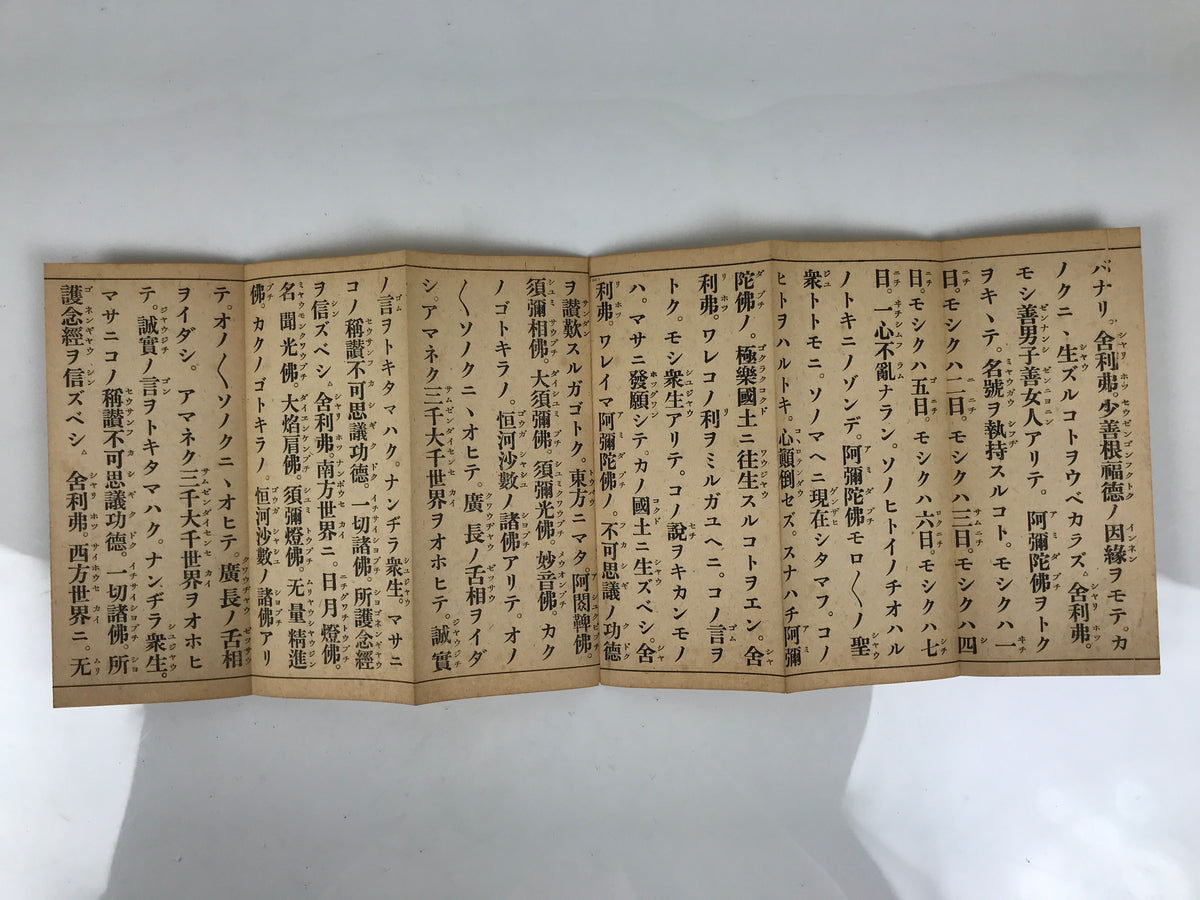 バナリ。舍利弗。少善根福德ノ因緣ヲモテ。カ
ノクニ、生ズルコトヲウベカラズ。舍利弗。
モシ善男子善女人アリテ。阿彌陀佛ヲトク
ヲキヽテ。名號ヲ執持スルコト。モシクハ一
日。モシクハ二日。モシクハ三日。モシクハ四
日。モシクハ五日。モシクハ六日。モシクハ七
日。一心不亂ナラン。ソノヒトイノチオハル
ノトキニノゾンデ。阿彌陀佛モロ〱ノ聖
衆トトモニ。ソノマヘニ現在シタマフ。コノ
ヒトヲハルトキ。心顚倒セズ。スナハチ阿彌
陀佛ノ。極樂國土ニ往生スルコトヲエン。舍
利弗。ワレコノ利ヲミルガユヘニ。コノ言ヲ
トク。モシ衆生アリテ。コノ說ヲキカンモノ
ハ。マサニ發願シテ。カノ國土ニ生ズベシ。舍
利弗。ワレイマ阿彌陀佛ノ。不可思議ノ功德
ヲ讃歎スルガゴトク。東方ニマタ。阿閦鞞佛。
須彌相佛。大須彌佛。須彌光佛。妙音佛。カク
ノゴトキラノ。恒河沙數ノ諸佛アリテ。オノ
〱ソノクニヽオヒテ。廣長ノ舌相ヲイダ
シ。アマネク三千大千世界ヲオホヒテ。誠實
ノ言ヲトキタマハク。ナンヂラ衆生。マサニ
コノ稱讃不可思議功德。一切諸佛。所護念經
ヲ信ズベシ。舍利弗。南方世界ニ。日月燈佛。
名聞光佛。大焰肩佛。須彌燈佛。无量精進
佛。カクノゴトキラノ。恒河沙數ノ諸佛アリ
テ。オノ〱ソノクニヽオヒテ。廣長ノ舌相
ヲイダシ。アマネク三千大千世界ヲオホヒ
テ。誠實ノ言ヲトキタマハク。ナンヂラ衆生。
マサニコノ稱讃不可思議功德。一切諸佛。所
護念經ヲ信ズベシ。舍利弗。西方世界ニ。无